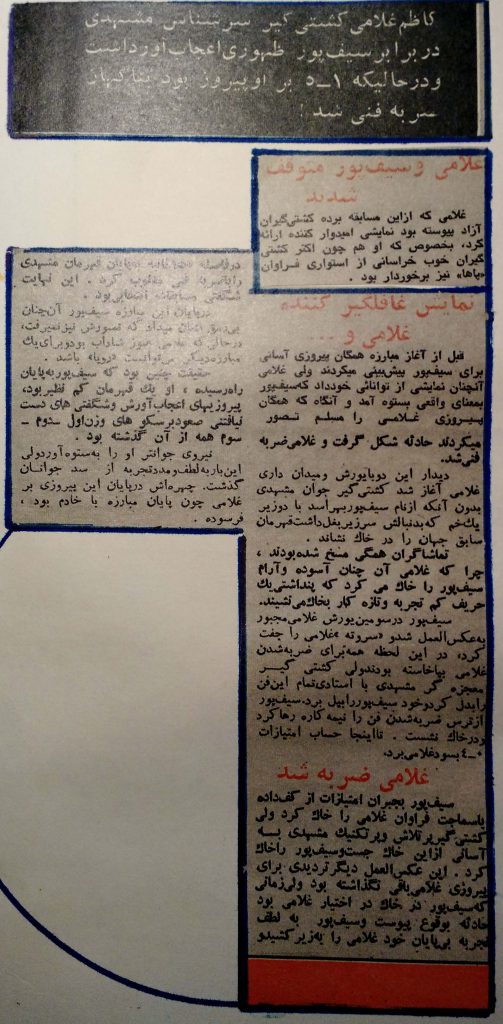 کاظم غلامی کشتی گیر سرشناس مشهدی
در برابر سیف‌پور ظهوری اعجاب‌آور داشت
و در حالیکه ۱ــ۵ بر او پیروز بود بناگهان
ضربه فنی شد!
غلامی و سیف‌پور متوقف
شدند
غلامی که از این مسابقه برده کشتی‌گیران
آزاد پیوسته بود نمایشی امیدوار کننده ارائه
کرد، بخصوص که او هم چون اکثر کشتی
گیران خوب خراسانی از استواری فراوان
«پاها» نیز برخوردار بود.
نمایش غافلگیر کننده
غلامی و ...
قبل از آغاز مبارزه همگان پیروزی آسانی
برای سیف‌پور پیش‌بینی میکردند ولی غلامی
آنچنان نمایشی از توانائی خود داد که سیف‌پور
بمعنای واقعی بستوه آمد و آنگاه که همگان
پیروزی غلامی را مسلم تصور
میکردند حادثه شکل گرفت و غلامی ضربه
فنی شد.
دیدار این دو با یورش و میدان داری
غلامی آغاز شد کشتی گیر جوان مشهدی
بدون آنکه از نام سیف‌پور بهراسد با دو زیر
یک خم که بدنبالش سرزیر بغل داشت قهرمان
سابق جهان را در خاک نشاند.
تماشاگران همگی مسخ شده بودند،
چرا که غلامی آن چنان آسوده و آرام
سیف‌پور را خاک می کرد که پنداشتی یک
حریف کم تجربه و تازه کار بخاک می‌نشیند.
سیف‌پور در سومین یورش غلامی مجبور
به عکس‌العمل شد و «سروته» غلامی را جفت
کرد، در این لحظه همه برای ضربه شدن
غلامی بپاخاسته بودند ولی کشتی گیر
معجزه گر مشهدی با استادی تمام این فن
را بدل کرد و خود سیف‌پور را بپل برد. سیف‌پور
از ترس ضربه شدن فن را نیمه کاره رها کرد
و در خاک نشست. تا اینجا حساب امتیازات
۰ــ۴ بسود غلامی بود.
غلامی ضربه شد
سیف‌پور بجبران امتیازات از کف داده
با سماجت فراوان غلامی را خاک کرد ولی
کشتی گیر پر تلاش و پر تکنیک مشهدی به
آسانی از این خاک جست و سیف‌پور را خاک
کرد. این عکس‌العمل دیگر تردیدی برای
پیروزی غلامی باقی نگذاشته بود ولی زمانی
که سیف‌پور در خاک در اختیار غلامی بود
حادثه بوقوع پیوست و سیف‌پور به لطف
تجربه بی‌پایان خود غلامی را به زیر کشید و
در فاصله به پایان قهرمان مشهدی
را با ضربه فنی مغلوب کرد. این نهایت
شگفتی مسابقات انتخابی بود.
در پایان این مبارزه سیف‌پور آن چنان
بی‌رمق نشان میداد که تصورش نیز نمیرفت،
در حالی که غلامی هنوز شاداب بود و برای یک
مبارزه دیگر می‌توانست «رو پا» باشد.
حقیقت چنین بود که سیف‌پور به پایان
راه رسیده، او یک قهرمان کم نظیر بود،
پیروزیهای اعجاب‌آورش و شگفتی های دست
نیافتنی صعود بر سکو های وزن اول سوم ــ
سوم همه از آن گذشته بود.
نیروی جوانش او را به ستوه آورد ولی
این بار به لطف و مدد تجربه از سد جوانان
گذشت. چهره‌اش در پایان این پیروزی بر
غلامی چون پایان مبارزه با خادم بود،
فرسوده.